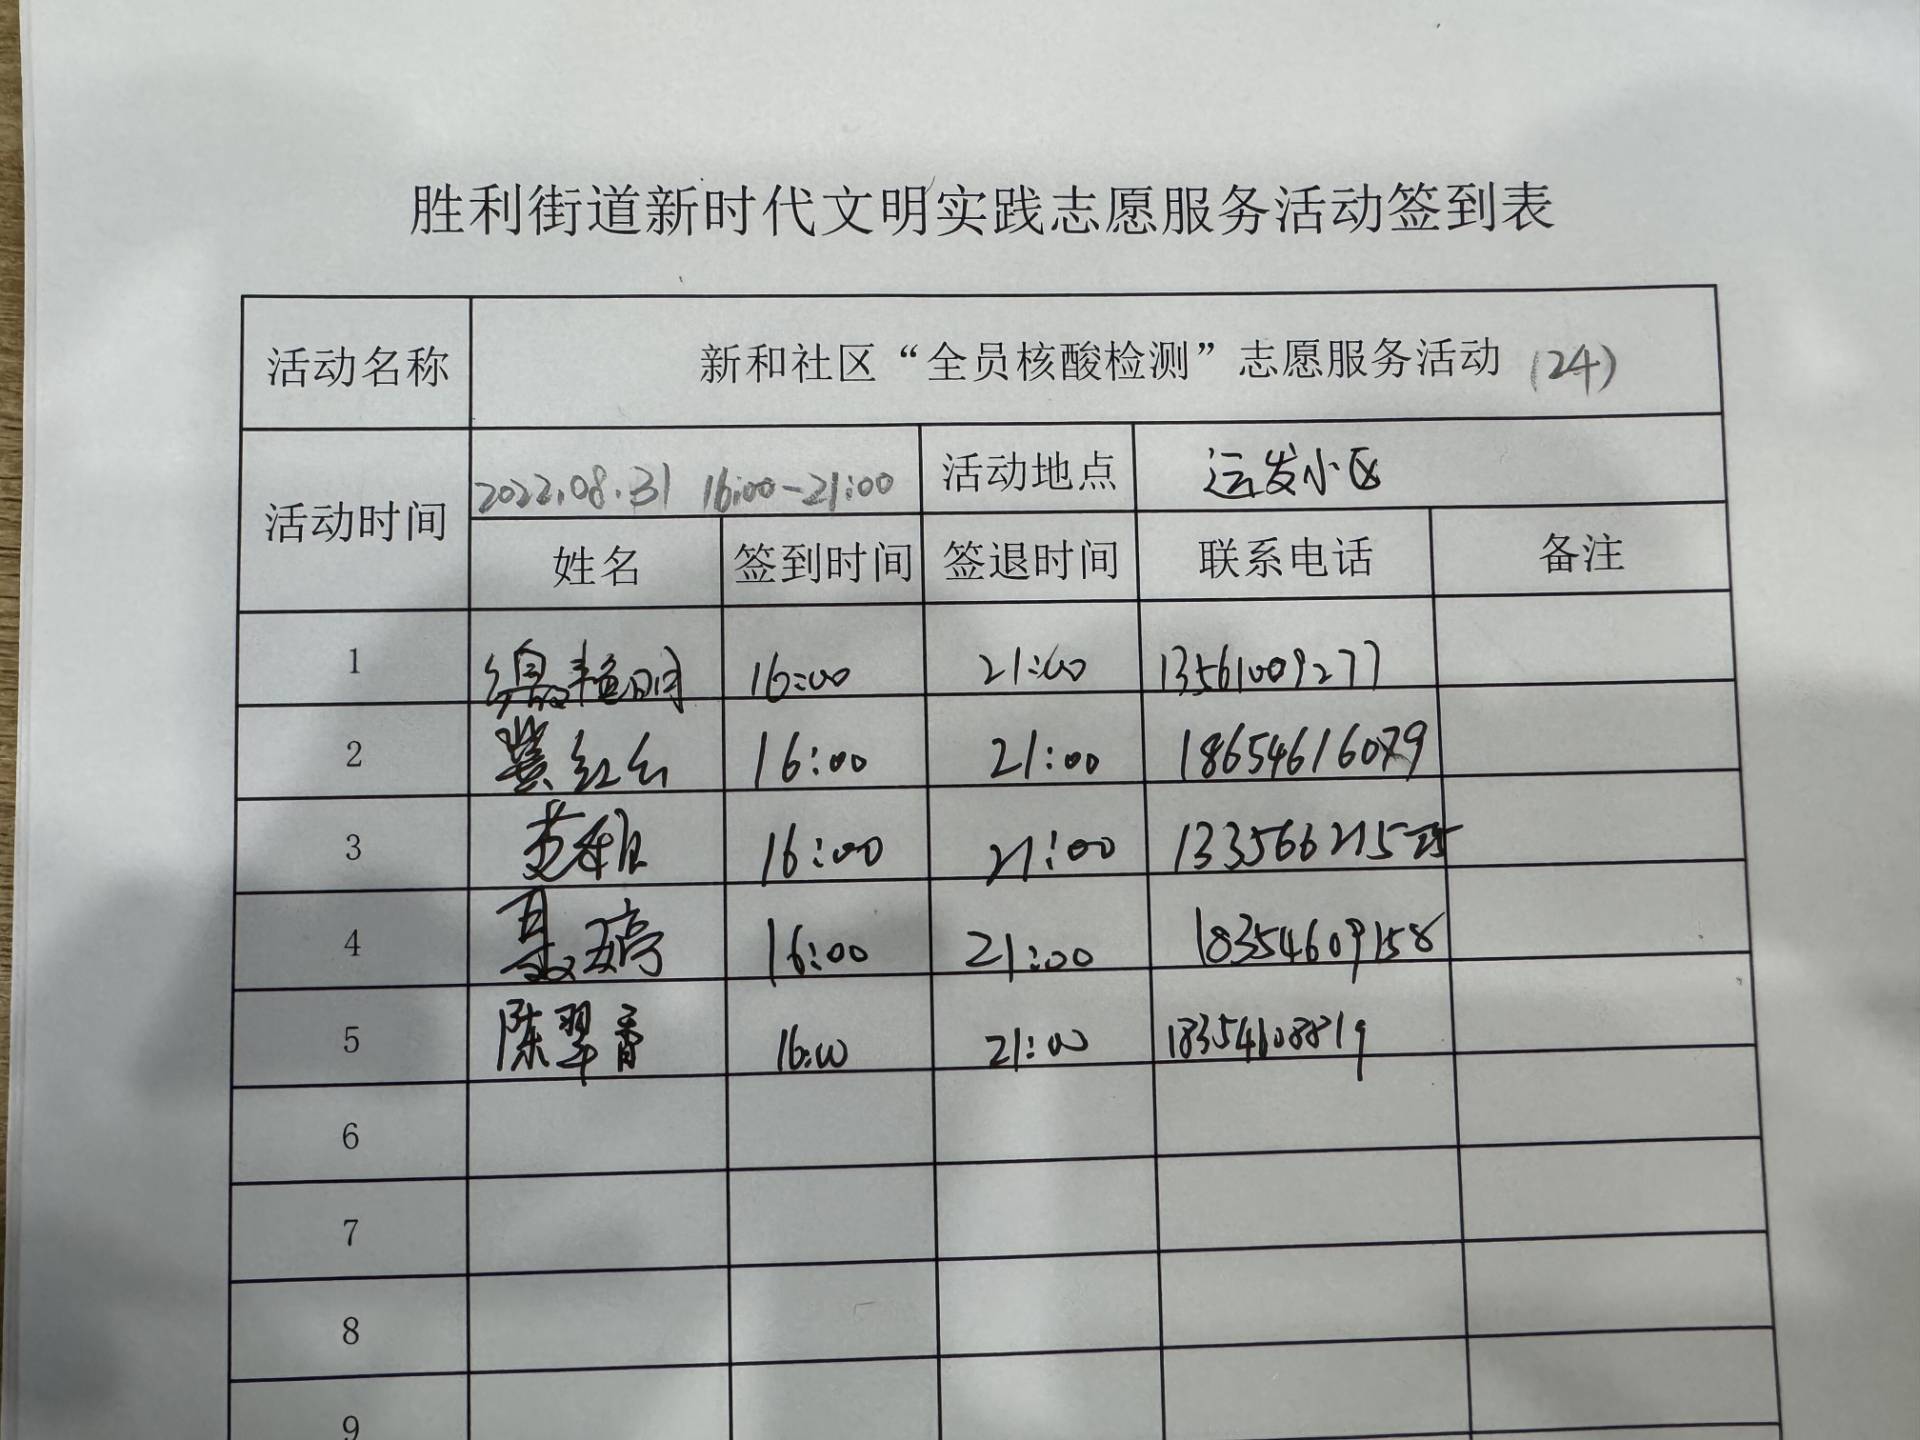 胜利街道新时代文明实践志愿服务活动签到表
活动名称 新和社区“全员核酸检测”志愿服务活动 (24)
活动时间 2022.08.31 16:00-21:00 活动地点 运发小区
姓名 签到时间 签退时间 联系电话 备注
1 16:00 21:00 13561009277
2 冀红云 16:00 21:00 18654616079
3 16:00 21:00
4 聂婷 16:00 21:00 18354609158
5 陈翠香 16:00 21:00 18354608819
6
7
8
9